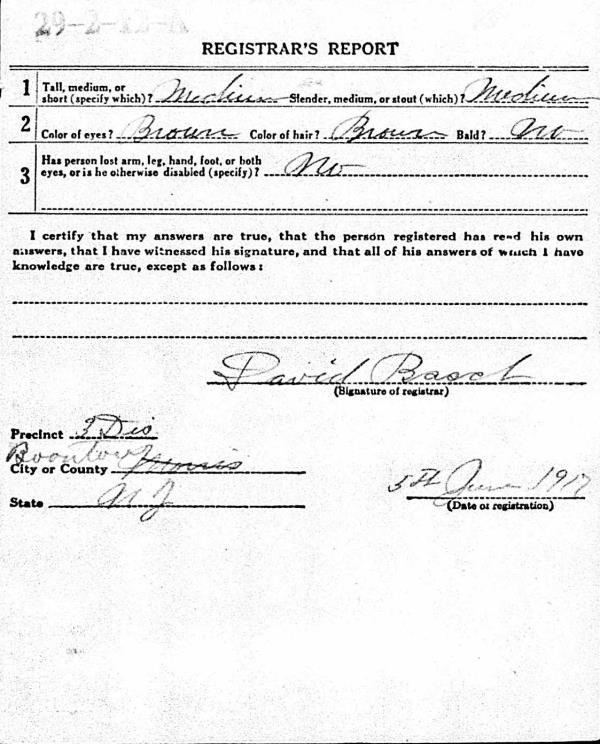 29-2-12-A
REGISTRAR'S REPORT
1 Tall, medium, or short (specify which)? Medium Slender, medium, or stout (which)? Medium
2 Color of eyes? Brown Color of hair? Brown Bald? No
3 Has person lost arm, leg, hand, foot, or both
eyes, or is he otherwise disabled (specify)? No
I certify that my answers are true, that the person registered has read his own
answers, that I have witnessed his signature, and that all of his answers of which I have
knowledge are true, except as follows:
David
(Signature of registrar)
Precinct 3 Dis
Boonton
City or County Morris
State N J
5th June 1917
(Date of registration)